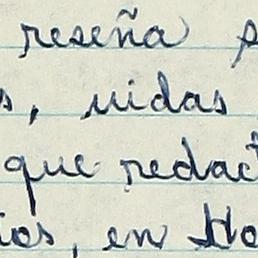 reseña
s, vidas
que redact
ios, en Ho